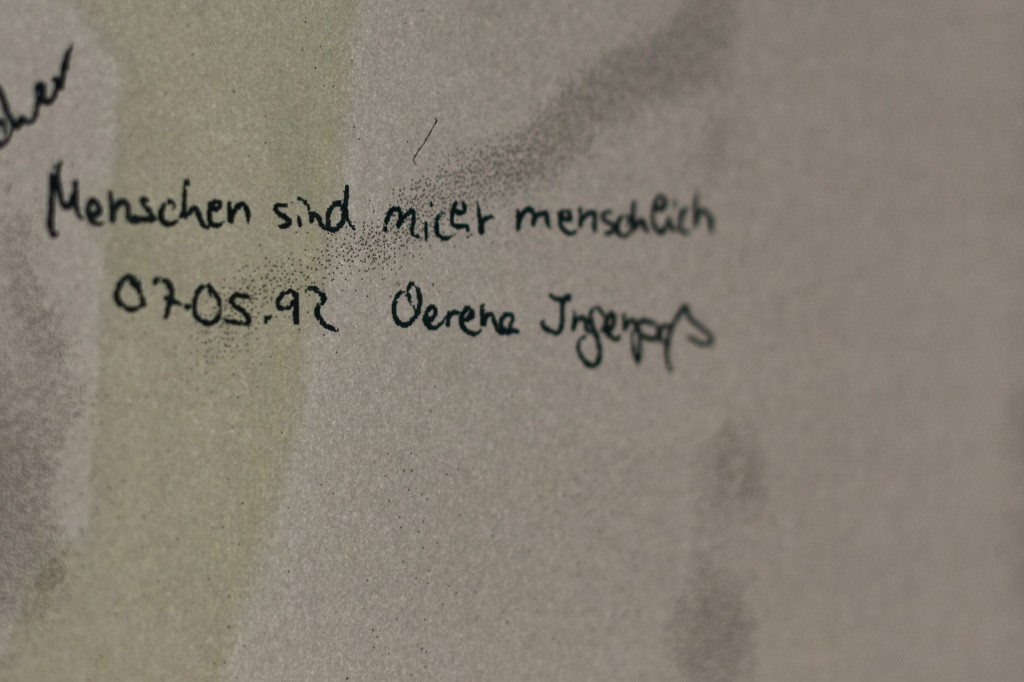 Menschen sind nicht menschlich
07.05.92 Verena